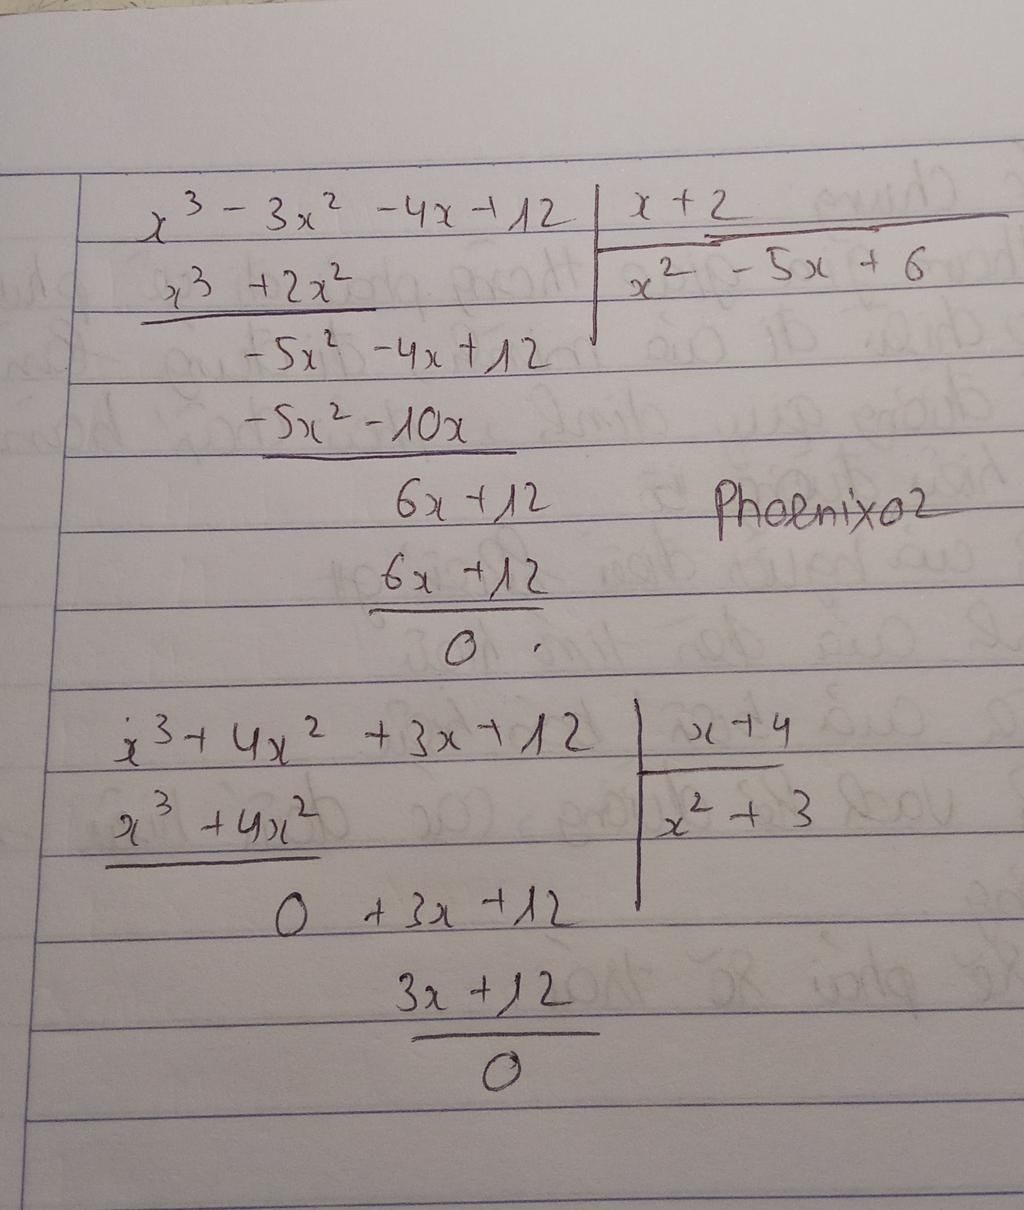 x³ - 3x² - 4x + 12 | x + 2
x³ + 2x² | x² - 5x + 6
-5x² - 4x + 12
-5x² - 10x
6x + 12
Phoenix02
6x + 12
0
x³ + 4x² + 3x + 12 | x + 4
x³ + 4x² | x² + 3
0 + 3x + 12
3x + 12
0